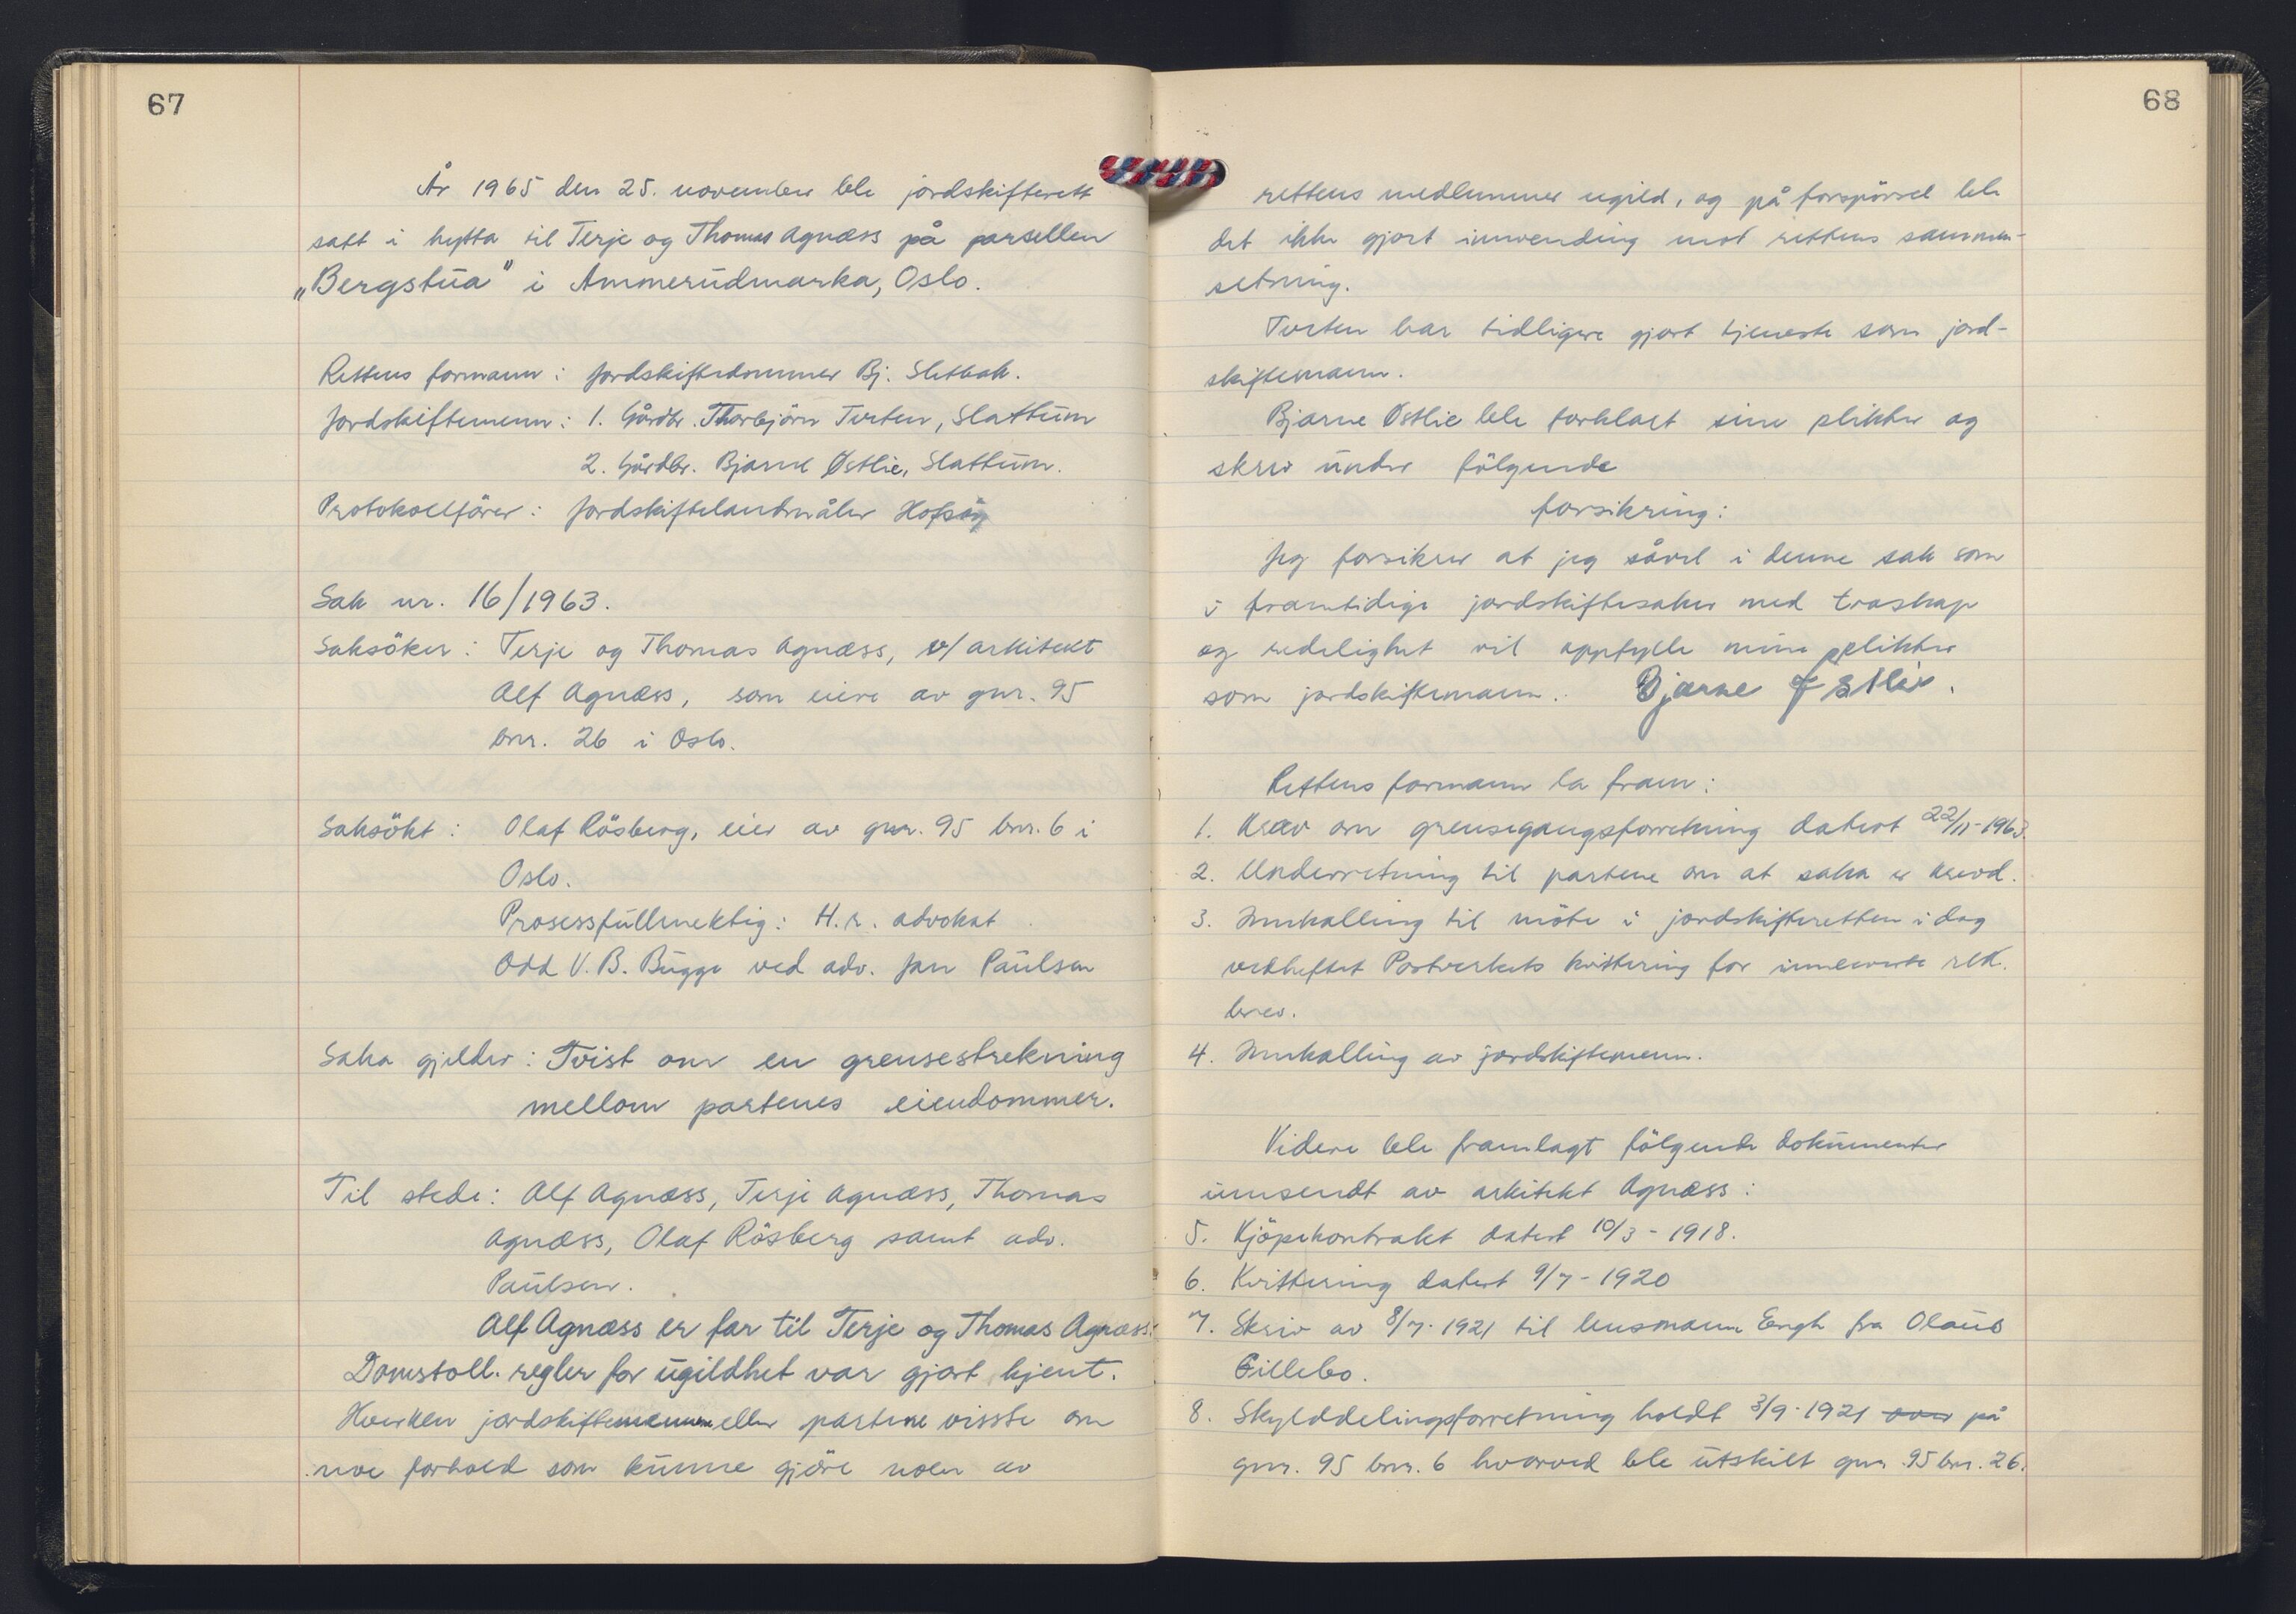 67
År 1965 den 25. november ble jordskifterett
satt i hytta til Terje og Thomas Agnæss på parsellen
„Bergstua" i Ammerudmarka, Oslo.
Rettens formann: Jordskiftedommer Bj. Sletbak.
Jordskiftemenn: 1. Gårdbr. Thorbjörn Torten, Slattum
2. Gårdbr. Bjarne Østlie, Slattum.
Protokollförer: Jordskiftelandmåler
Sak nr. 16/1963.
Saksöker: Terje og Thomas Agnæss, v/ arkitekt
Alf Agnæss, som eiere av gnr. 95
bnr. 26 i Oslo.
Saksökt: Olaf Rösberg, eier av gnr. 95 bnr. 6 i
Oslo.
Prosessfullmektig: H.r. advokat
Odd V. B. Bugge ved adv. Jan Paulsen
Saka gjelder: Tvist om en grensestrekning
mellom partenes eiendommer.
Til stede: Alf Agnæss, Terje Agnæss, Thomas
Agnæss, Olaf Rösberg samt adv.
Paulsen.
Alf Agnæss er far til Terje og Thomas Agnæss.
Domstoll. regler for ugildhet var gjort kjent.
Hverken jordskiftemennene eller partene visste om
noe forhold som kunne gjöre noen av
68
rettens medlemmer ugild, og på forspörsel ble
det ikke gjort innvending mot rettens sammen-
setning.
Torten har tidligere gjort tjeneste som jord-
skiftemann.
Bjarne Østlie ble forklart sine plikter og
skrev under fölgende
forsikring:
Jeg forsikrer at jeg såvel i denne sak som
i framtidige jordskiftesaker med troskap
og redelighet vil oppfylle mine plikter
som jordskiftemann. Bjarne Østlie.
Rettens formann la fram:
1. Krav om grensegangsforretning datert 22/11-1963.
2. Underretning til partene om at saka er krevd.
3. Innkalling til möte i jordskifteretten i dag
vedheftet Postverkets kvittering for innleverte rek.
brev.
4. Innkalling av jordskiftemenn.
Videre ble framlagt fölgende dokumenter
innsendt av arkitekt Agnæss:
5. Kjöpekontrakt datert 10/3-1918.
6. Kvittering datert 9/7-1920
7. Skriv av 8/7-1921 til lensmann Engh fra Olaus
Gillebo.
8. Skylddelingsforretning holdt 3/9-1921 over på
gnr. 95 bnr. 6 hvorved ble utskilt gnr. 95 bnr. 26.